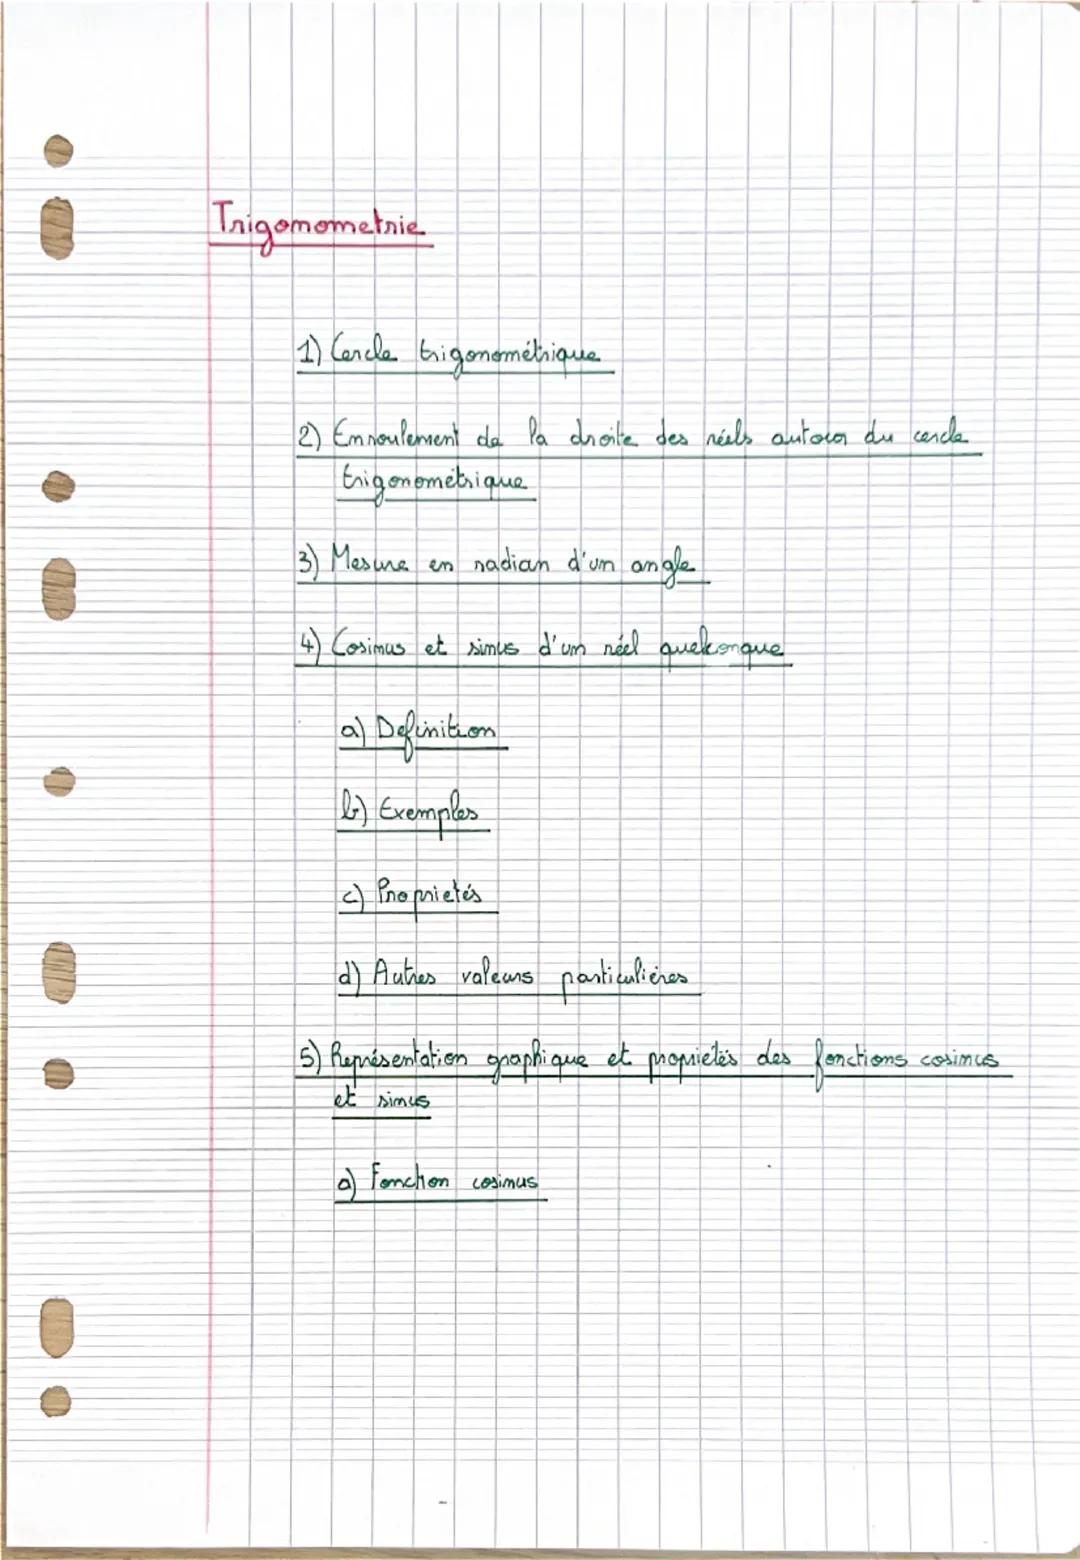 Trigonometrie
1) Cercle trigonométrique
2) Enroulement de la droite des réels autour du cercle
trigonométrique
3) Mesure en radian d'un angle
4) Cosinus et sinus d'un réel quelconque
a) Definition
b) Exemples
c) Proprietés
d) Autres valeurs particulières
5) Représentation graphique et propriétés des fonctions cosinus
et sinus
a) Fonction cosinus